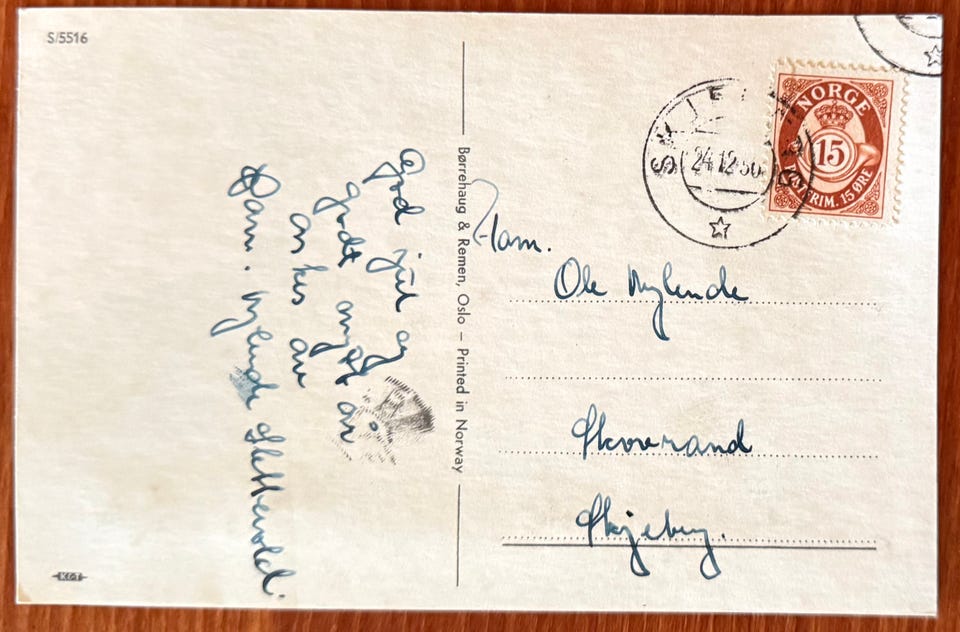 S/5516
God jul og
godt nytt år
ønskes av
Fam. Nylende Slettevold.
Børrehaug & Remen, Oslo – Printed in Norway
K&T
NORGE
15
POSTFRIM. 15 ØRE
24.12.50
Fam.
Ole Nylende
Skjeberg.